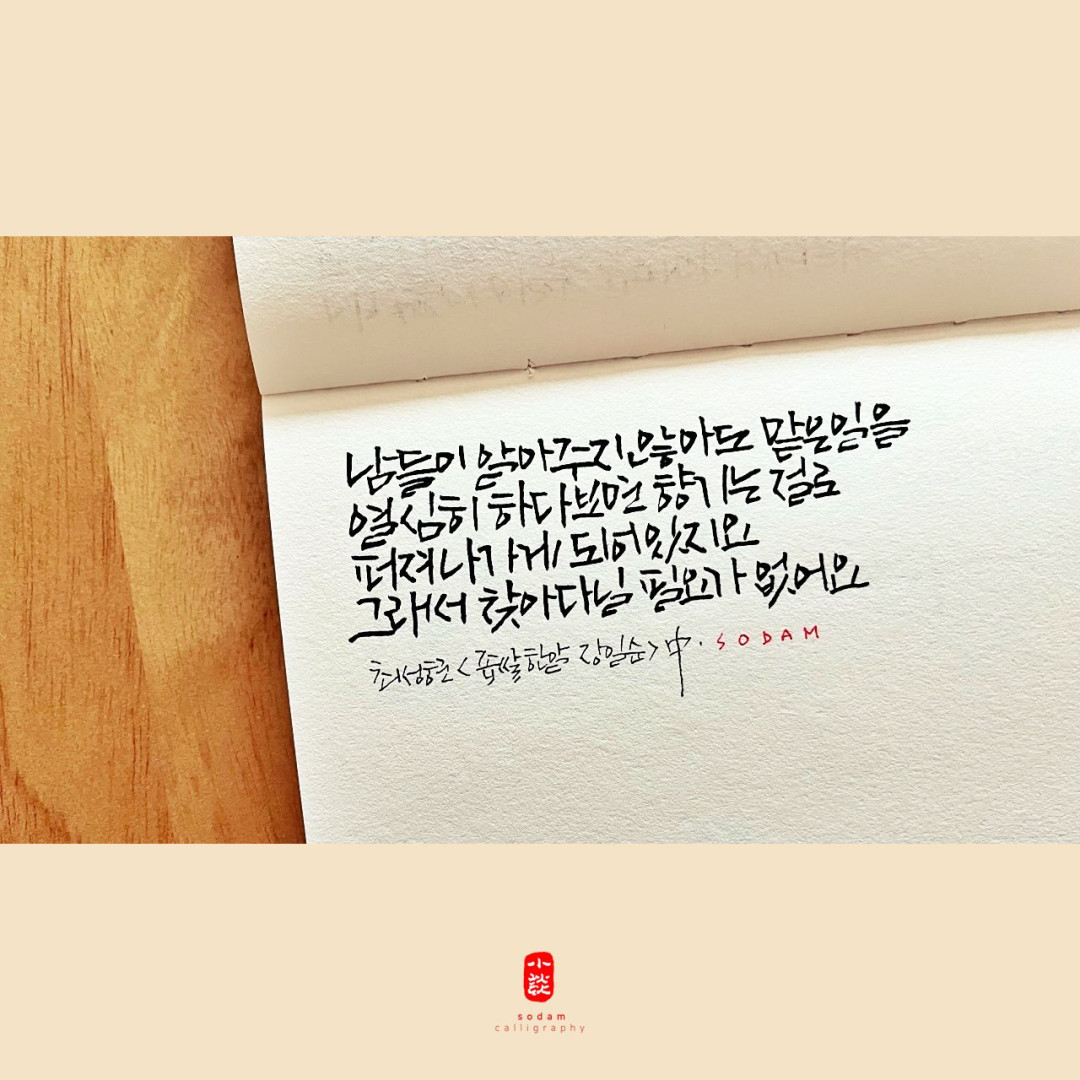 남들이 알아주지 않아도 맡은일을
열심히 하다보면 향기는 절로
퍼져나가게 되어있지요
그래서 찾아다님 필요가 없어요
최성현 <좁쌀한알 장일순> 中. SODAM
小談
sodam
calligraphy